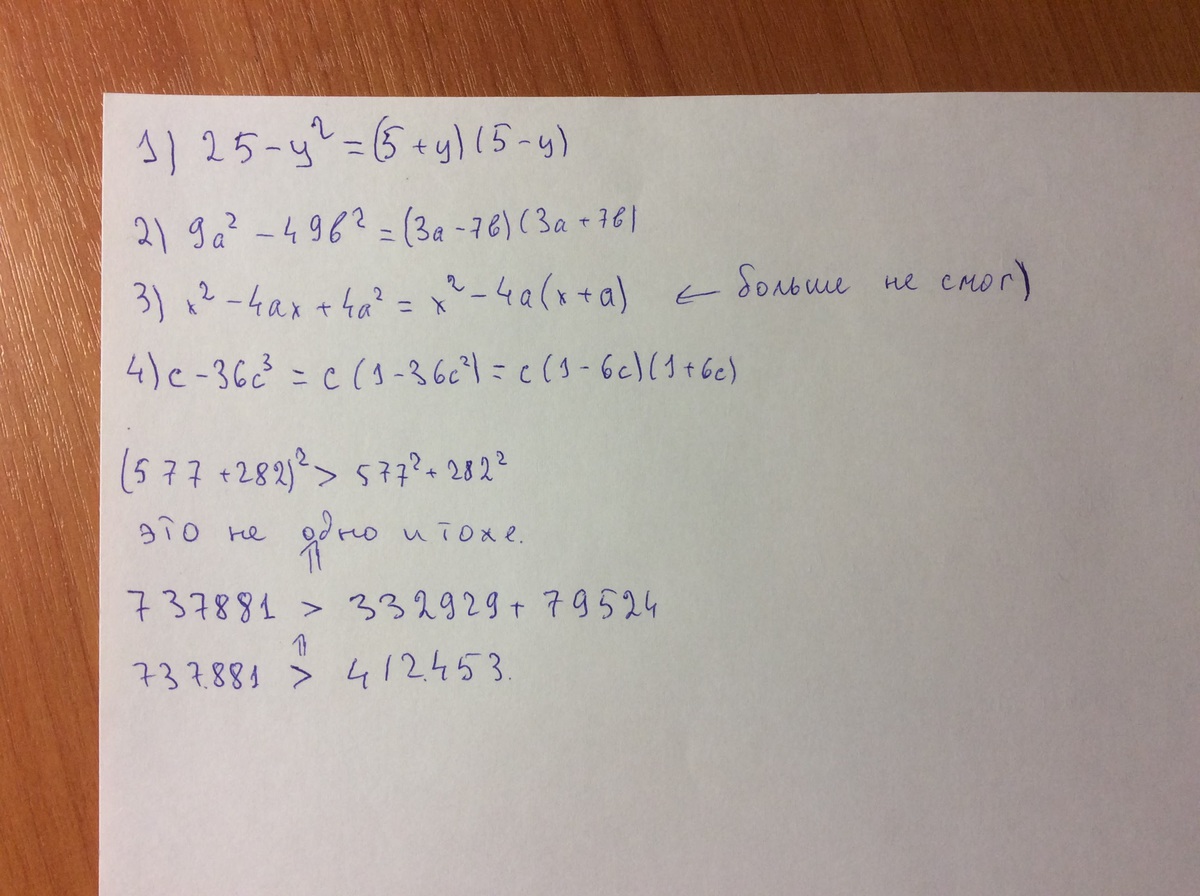 1) 25-y²=(5+y)(5-y)
2) 9a²-49b²=(3a-7b)(3a+7b)
3) x²-4ax+4a²=x²-4a(x+a) ← больше не смог)
4) c-36c³=c(1-36c²)=c(1-6c)(1+6c)
(577+282)²>577²+282²
это не одно и тоже.
⇑
737881 > 332929+79524
⇑
737.881 > 412.453.